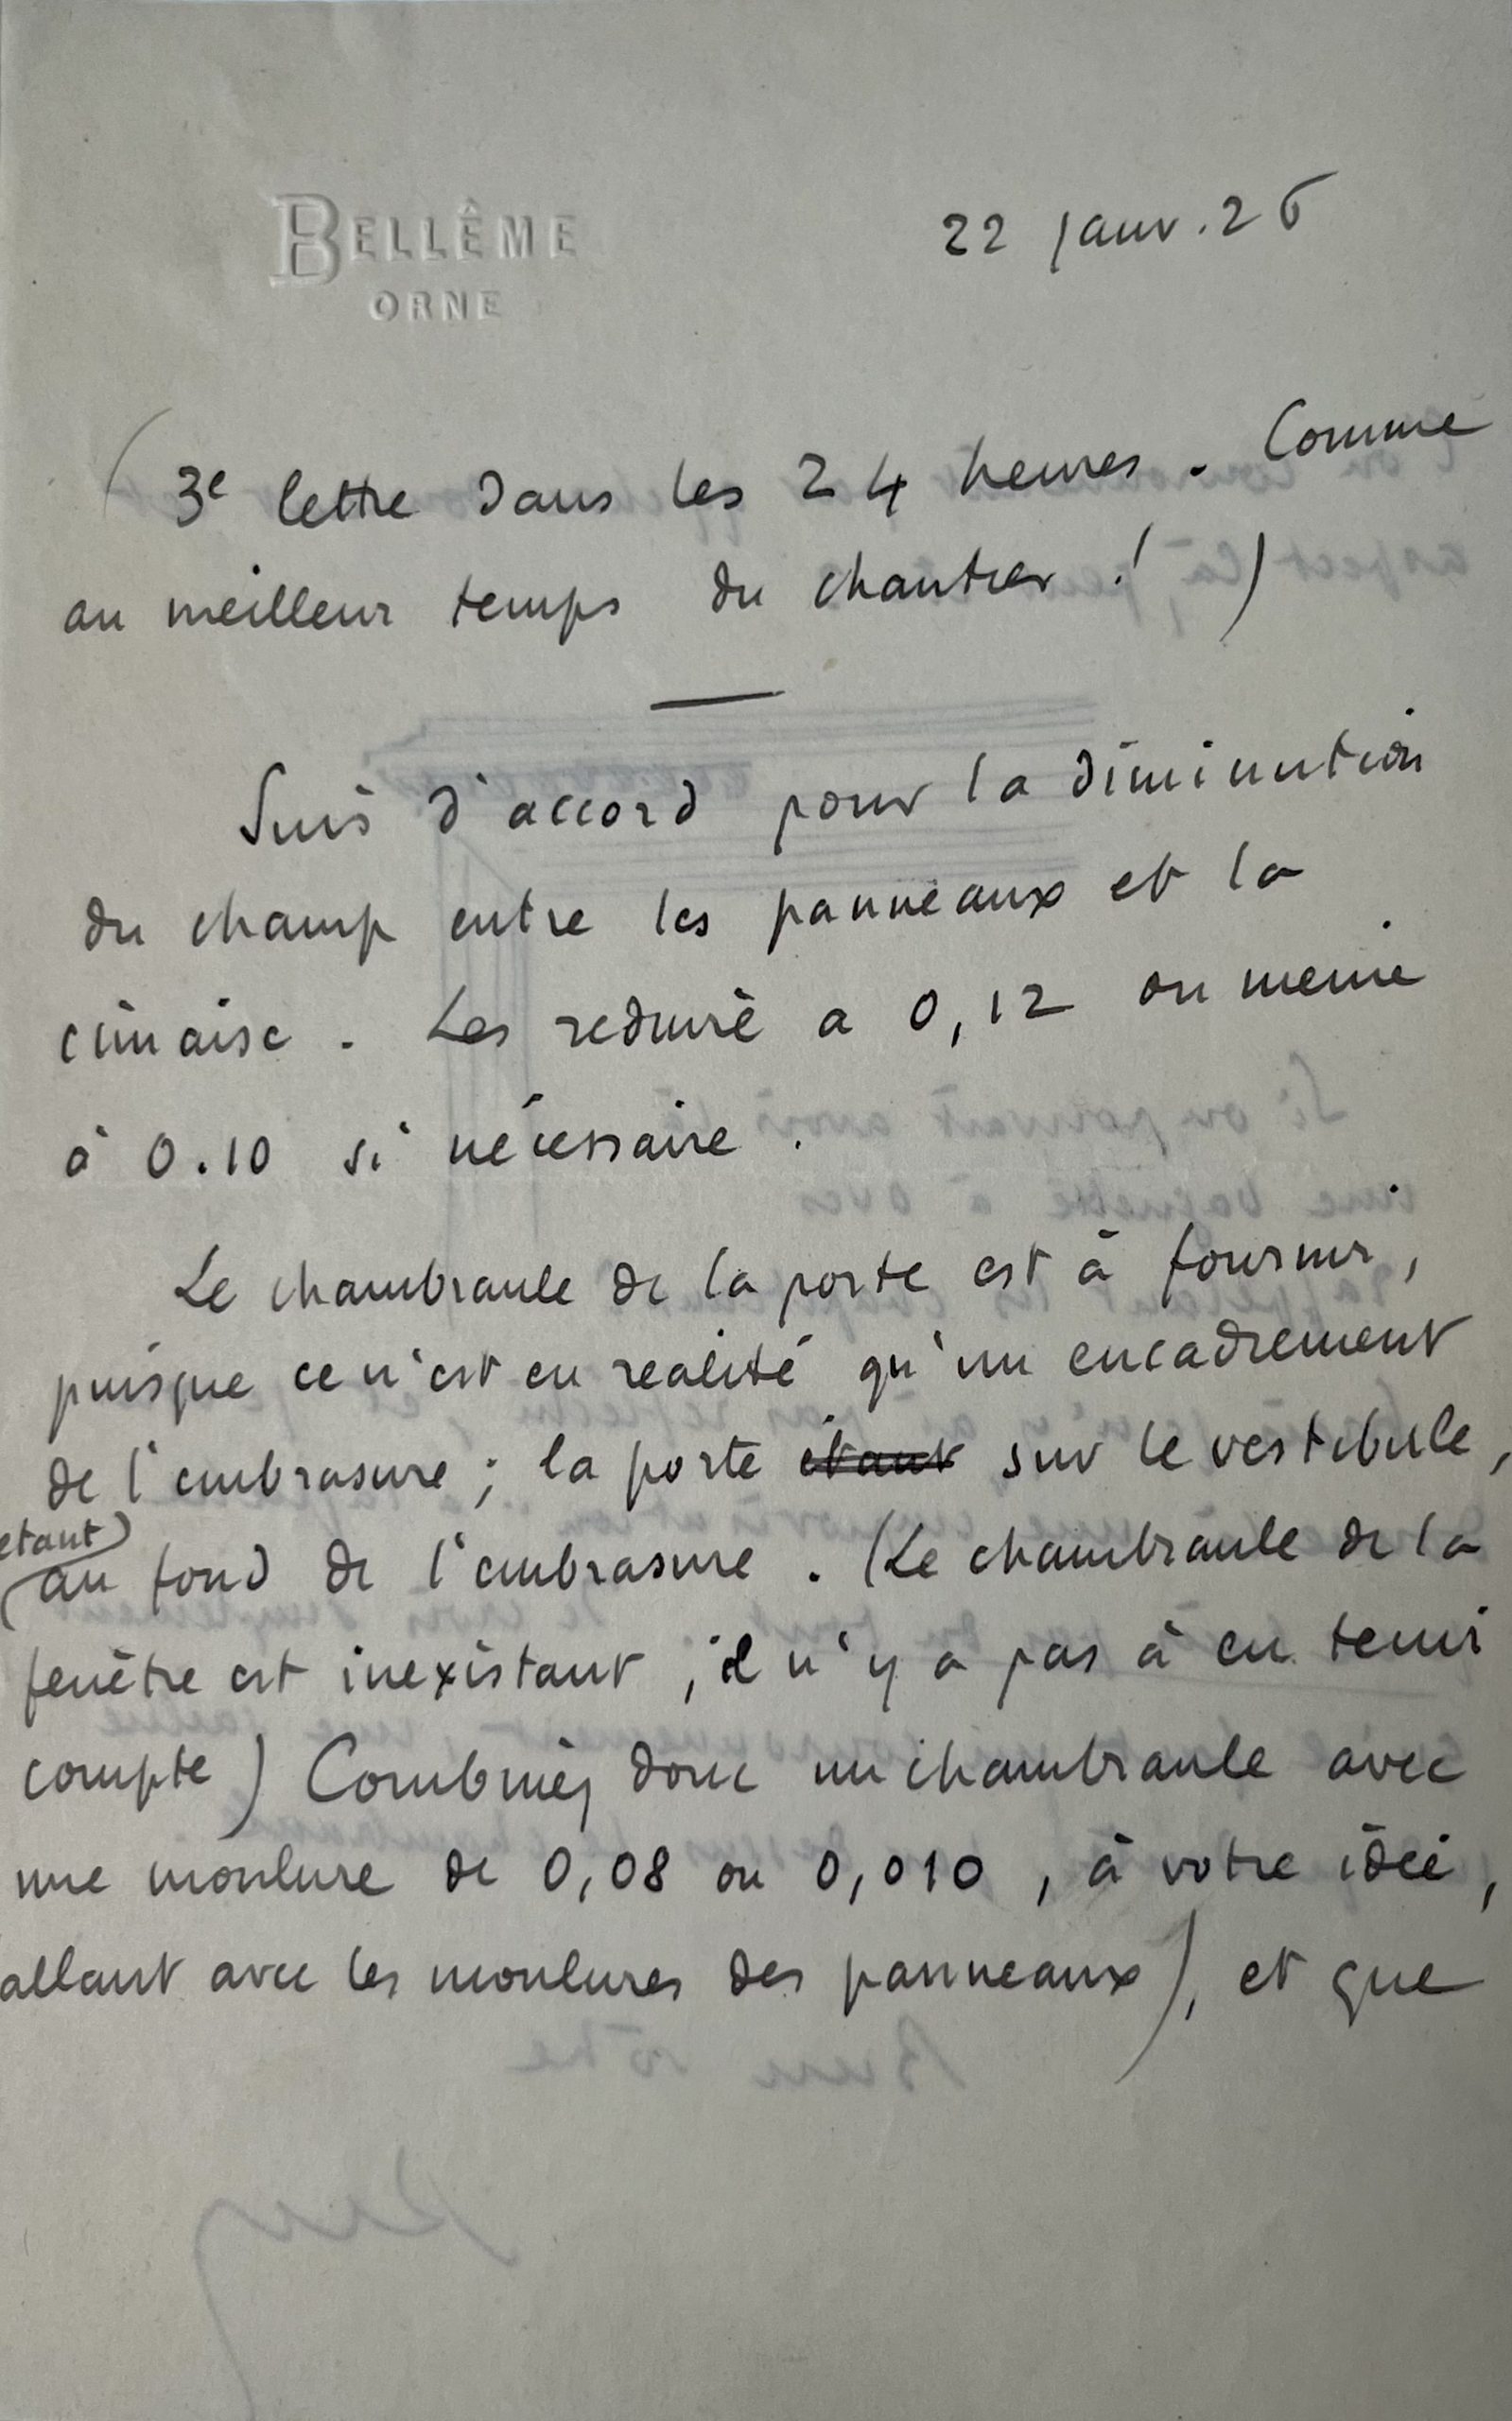 BELLÊME
ORNE
22 janv. 26
( 3e lettre dans les 24 heures. Comme
au meilleur temps du chantier ! )
Suis d'accord pour la diminution
du champ entre les panneaux et la
cimaise. Les reduire a 0,12 ou meme
à 0.10 si nécessaire.
Le chambranle de la porte est à fournir,
puisque ce n'est en realité qu'un encadrement
de l'embrasure ; la porte étant sur le vestibule,
etant
au fond de l'embrasure. (Le chambranle de la
fenêtre est inexistant, il n'y a pas à en tenir
compte) Combinez donc un chambranle avec
une moulure de 0,08 ou 0,010, à votre idée,
allant avec les moulures des panneaux), et que